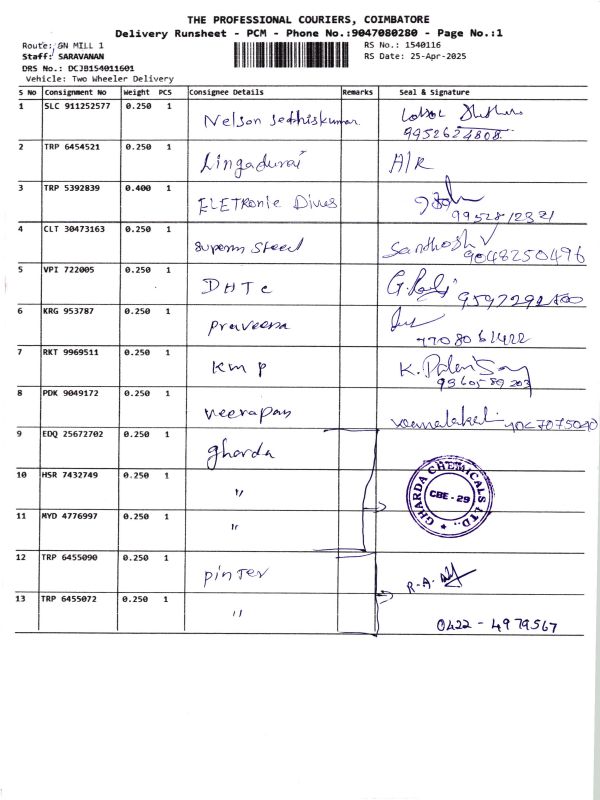 THE PROFESSIONAL COURIERS, COIMBATORE
Delivery Runsheet - PCM - Phone No.:9047080280 - Page No.:1
Route: GN MILL 1
RS No.: 1540116
Staff: SARAVANAN
RS Date: 25-Apr-2025
DRS No.: DCJB154011601
Vehicle: Two Wheeler Delivery
S No Consignment No Weight PCS Consignee Details Remarks Seal & Signature
1 SLC 911252577 0.250 1 Nelson
9952624808
2 TRP 6454521 0.250 1 Lingadurai A/R
3 TRP 5392839 0.400 1 ELETRonic
9952812321
4 CLT 30473163 0.250 1 Steel Santhosh V
9048250496
5 VPI 722005 0.250 1 DHTC
6 KRG 953787 0.250 1 Praveena
7708061422
7 RKT 9969511 0.250 1 KMP K.
9360589203
8 PDK 9049172 0.250 1 veerapan
9 EDQ 25672702 0.250 1 gharda
10 HSR 7432749 0.250 1 "
GHARDA CHEMICALS LTD.,
CBE - 29
11 MYD 4776997 0.250 1 "
12 TRP 6455090 0.250 1 pinter R-A.
13 TRP 6455072 0.250 1 "
0422 - 4979567